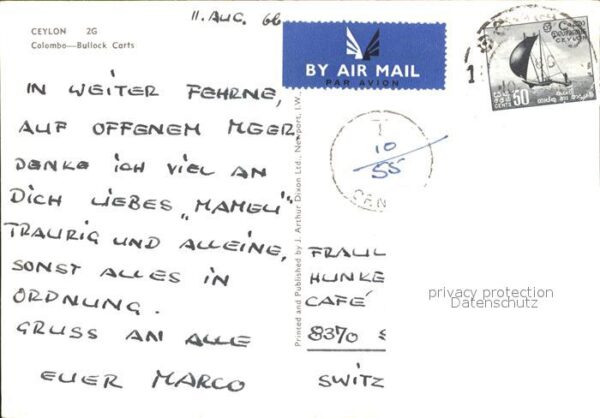 11. AUG. 66
CEYLON 2G
Colombo—Bullock Carts
IN WEITER FEHRNE,
AUF OFFENEM MEER
DENKE ICH VIEL AN
DICH LIEBES „MAMELI"
TRAURIG UND ALLEINE,
SONST ALLES IN
ORDNUNG.
GRUSS AN ALLE
EUER MARCO
Printed and Published by J. Arthur Dixon Ltd., Newport, I.W.,
BY AIR MAIL
PAR AVION
CEYLON
50
CENTS
T
10
55
CEN
FRAUL
HUNKE
CAFÉ
8370 S
SWITZ
privacy protection
Datenschutz